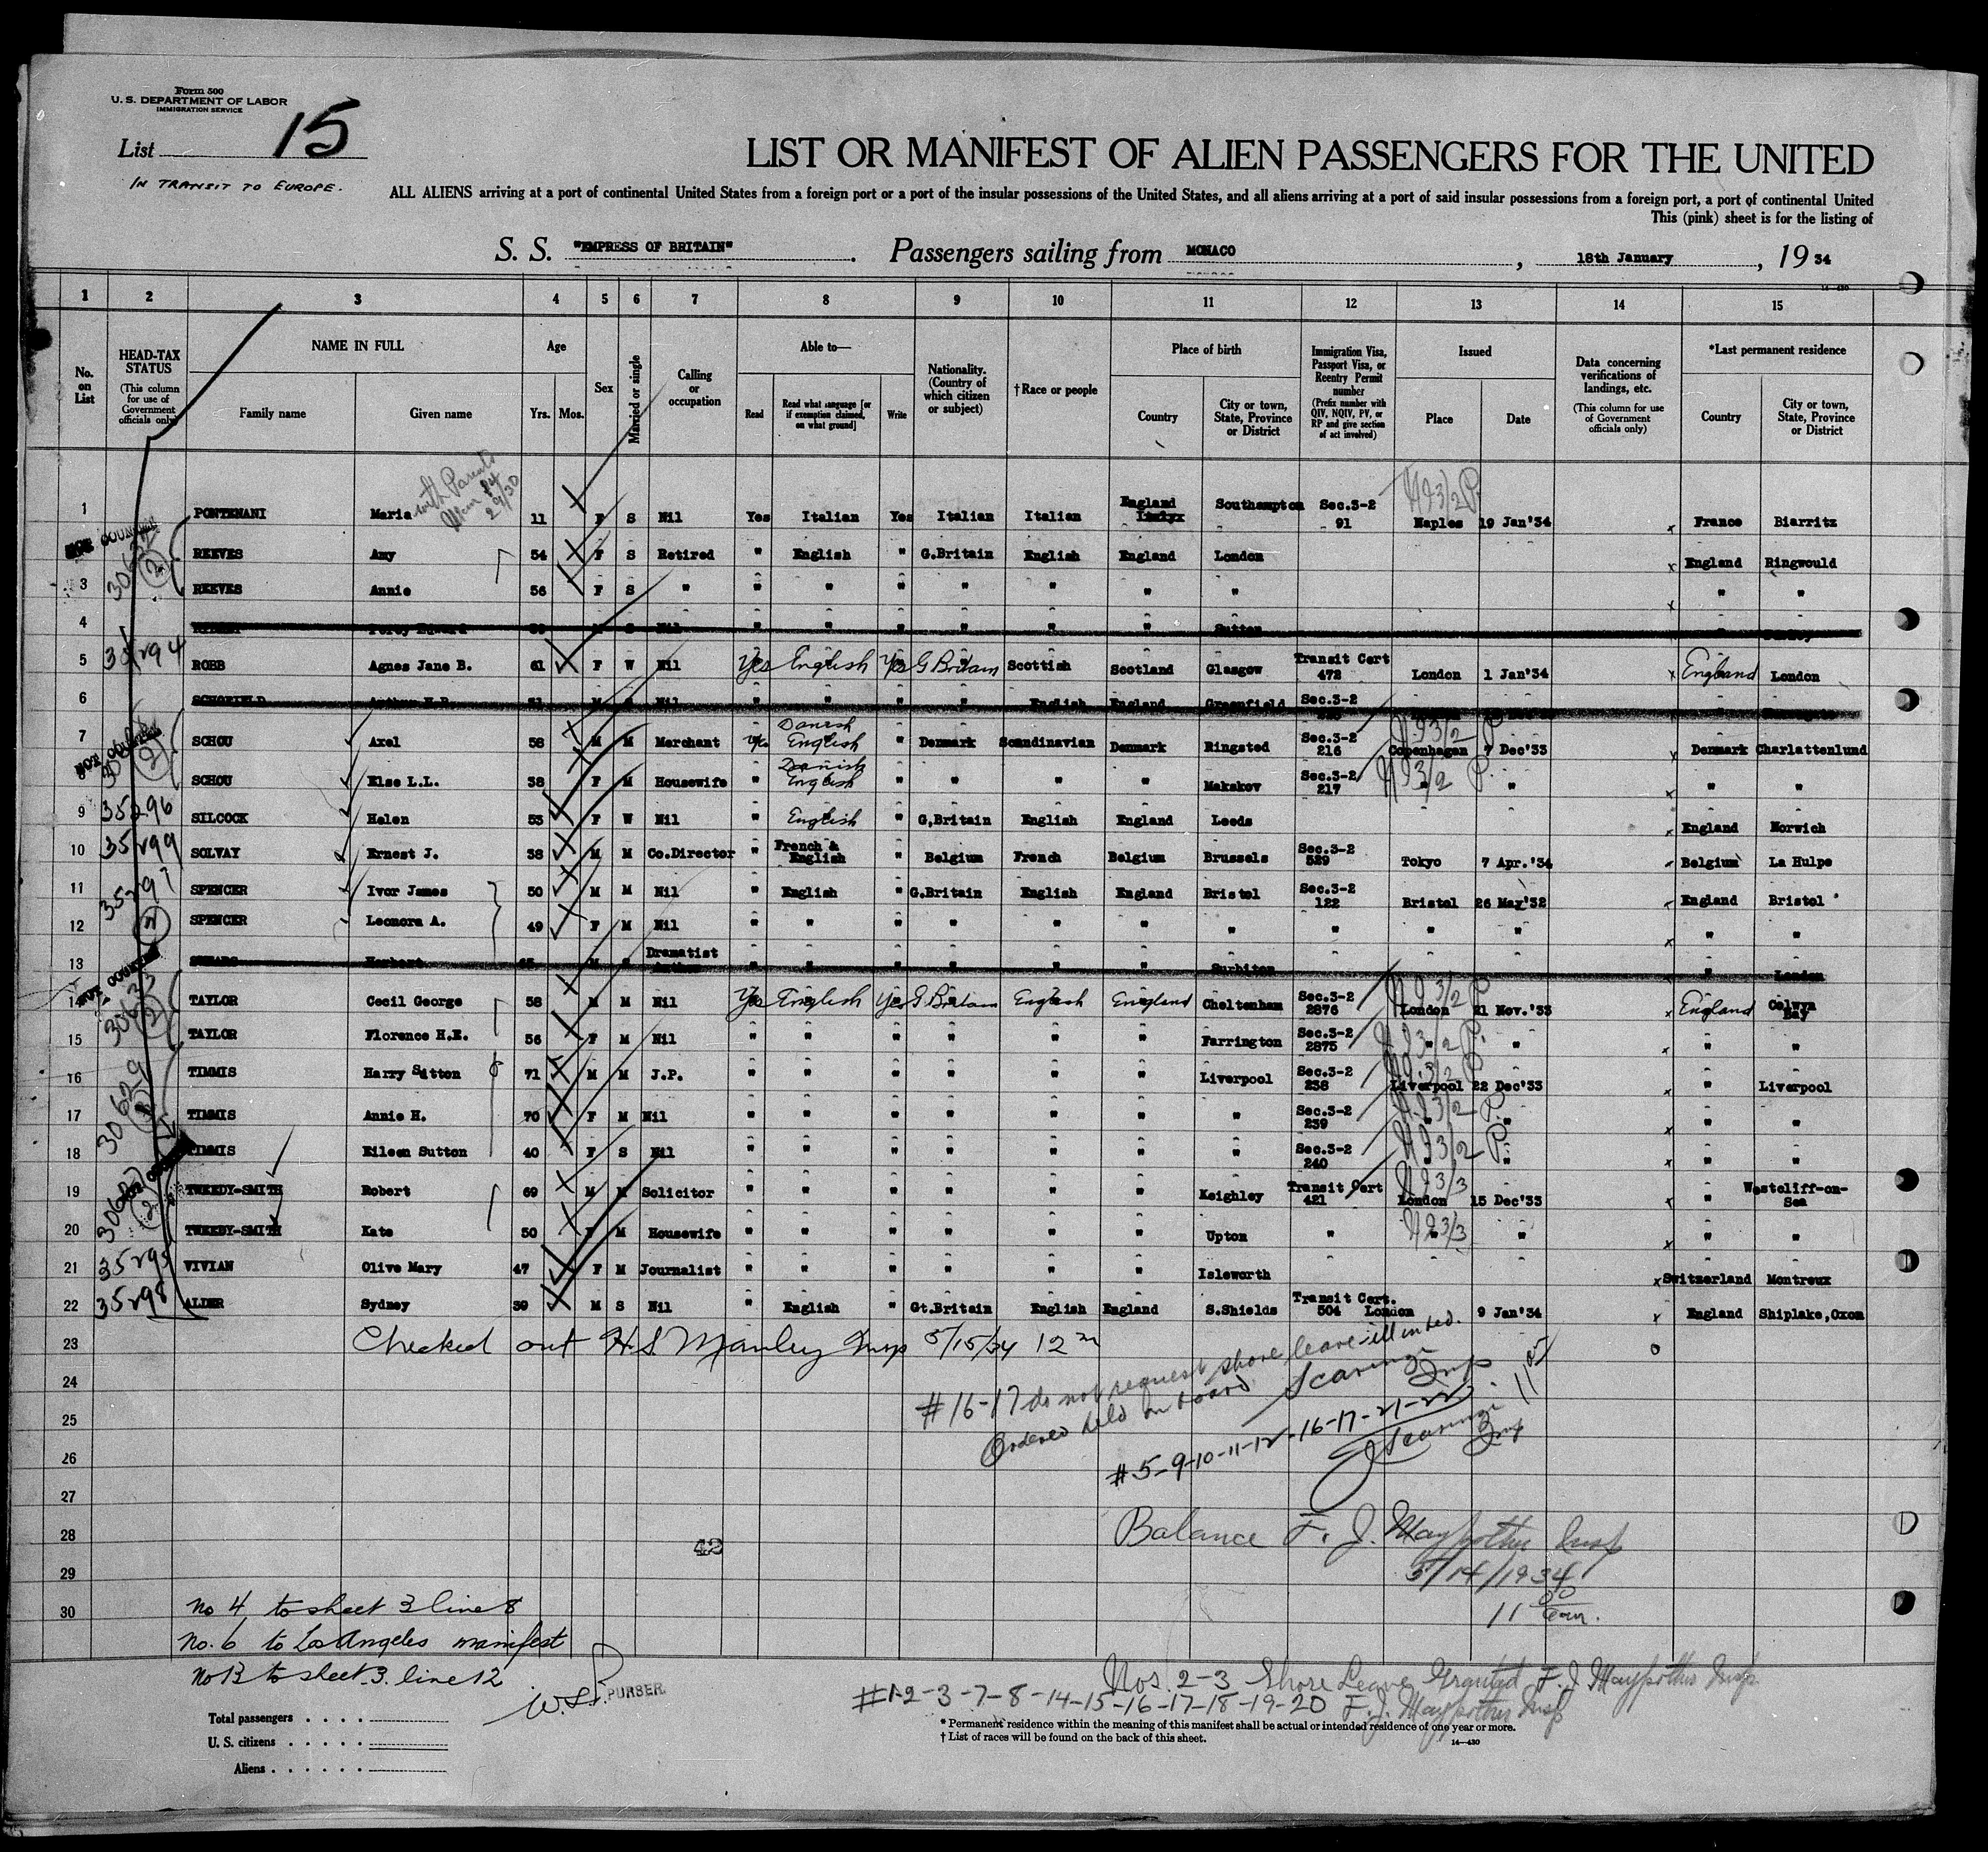 Form 500
U. S. DEPARTMENT OF LABOR
IMMIGRATION SERVICE
List 15
IN TRANSIT TO EUROPE.
LIST OR MANIFEST OF ALIEN PASSENGERS FOR THE UNITED
ALL ALIENS arriving at a port of continental United States from a foreign port or a port of the insular possessions of the United States, and all aliens arriving at a port of said insular possessions from a foreign port, a port of continental United
This (pink) sheet is for the listing of
S. S. "EMPRESS OF BRITAIN". Passengers sailing from MONACO, 18th January, 19 34
1 2 3 4 5 6 7 8 9 10 11 12 13 14 15
No. on List
HEAD-TAX STATUS (This column for use of Government officials only)
NAME IN FULL
Family name Given name
Age Yrs. Mos.
Sex
Married or single
Calling or occupation
Able to—
Read Read what language [or if exemption claimed, on what ground] Write
Nationality. (Country of which citizen or subject)
† Race or people
Place of birth
Country City or town, State, Province or District
Immigration Visa, Passport Visa, or Reentry Permit number (Prefix number with QIV, NQIV, PV, or RP and give section of act involved)
Issued
Place Date
Data concerning verifications of landings, etc. (This column for use of Government officials only)
*Last permanent residence
Country City or town, State, Province or District
with Parents
1 PONTENANI Maria 11 F S Nil Yes Italian Yes Italian Italian England Southampton Sec.3-2 91 Naples 19 Jan'34 x France Biarritz
REEVES Amy 54 F S Retired " English " G.Britain English England London x England Ringwould
3 REEVES Annie 56 F S " " " " " " " " x " "
4 Percy Edward M S Nil " " " " " " Sutton
5 35294 ROBB Agnes Jane B. 61 F W Nil Yes English Yes G Britain Scottish Scotland Glasgow Transit Cert 472 London 1 Jan'34 x England London
6 SCHOFIELD Arthur H.R. M Nil " " " " English England Greenfield Sec.3-2
7 SCHOU Axel 58 M M Merchant Yes Danish English " Denmark Scandinavian Denmark Ringsted Sec.3-2 216 Copenhagen 7 Dec'33 x Denmark Charlattenlund
SCHOU Else L.L. 38 F M Housewife " Danish English " " " " Makskov Sec.3-2 217 " " x " "
9 35296 SILCOCK Helen 53 F W Nil " English " G,Britain English England Leeds x England Norwich
10 35299 SOLVAY Ernest J. 38 M M Co.Director " French & English " Belgium French Belgium Brussels Sec.3-2 529 Tokyo 7 Apr.'34 Belgium La Hulpe
11 35297 SPENCER Ivor James 50 M M Nil " English " G.Britain English England Bristol Sec.3-2 122 Bristol 26 May'32 England Bristol
12 SPENCER Leonora A. 49 F M Nil " " " " " " " " " x " "
13 Herbert M Dramatist Author " " " " " " Surbiton " London
14 TAYLOR Cecil George 58 M M Nil Yes English Yes G Britain English England Cheltenham Sec.3-2 2876 London 21 Nov.'33 x England Colwyn Bay
15 TAYLOR Florence H.E. 56 F M Nil " " " " " " Farrington Sec.3-2 2875 " " x " "
16 TIMMIS Harry Sutton 71 M M J.P. " " " " " " Liverpool Sec.3-2 238 Liverpool 22 Dec'33 " Liverpool
17 TIMMIS Annie H. 70 F M Nil " " " " " " " Sec.3-2 239 " " x " "
18 TIMMIS Eileen Sutton 40 F S Nil " " " " " " " Sec.3-2 240 " " x " "
19 TWEEDY-SMITH Robert 69 M M Solicitor " " " " " " Keighley Transit Cert 421 London 15 Dec'33 x " Westcliff-on-Sea
20 TWEEDY-SMITH Kate 50 F M Housewife " " " " " " Upton " " " x " "
21 35295 VIVIAN Olive Mary 47 F M Journalist " " " " " " Isleworth x Switzerland Montreux
22 35298 ALDER Sydney 39 M S Nil " English " Gt.Britain English England S.Shields Transit Cert. 504 London 9 Jan'34 x England Shiplake,Oxon
23 Checked out H.S. Manley Insp 5/15/34 12
24
#16-17 do not request shore leave-ill in bed.
Ordered held on board
25
#5-9-10-11-12-16-17-21-22
26
27
28 Balance F. J. Maypother Insp
42
5/14/1934
29
30
11 00 am.
No 4 to sheet 3 line 8
No. 6 to Los Angeles manifest
No 13 to sheet 3. line 12
PURSER.
Nos. 2-3 Shore Leave Granted F. J Maypother Insp
#1-2-3-7-8-14-15-16-17-18-19-20 F. J. Maypother Insp
Total passengers
U. S. citizens
Aliens
* Permanent residence within the meaning of this manifest shall be actual or intended residence of one year or more.
† List of races will be found on the back of this sheet.
14—430